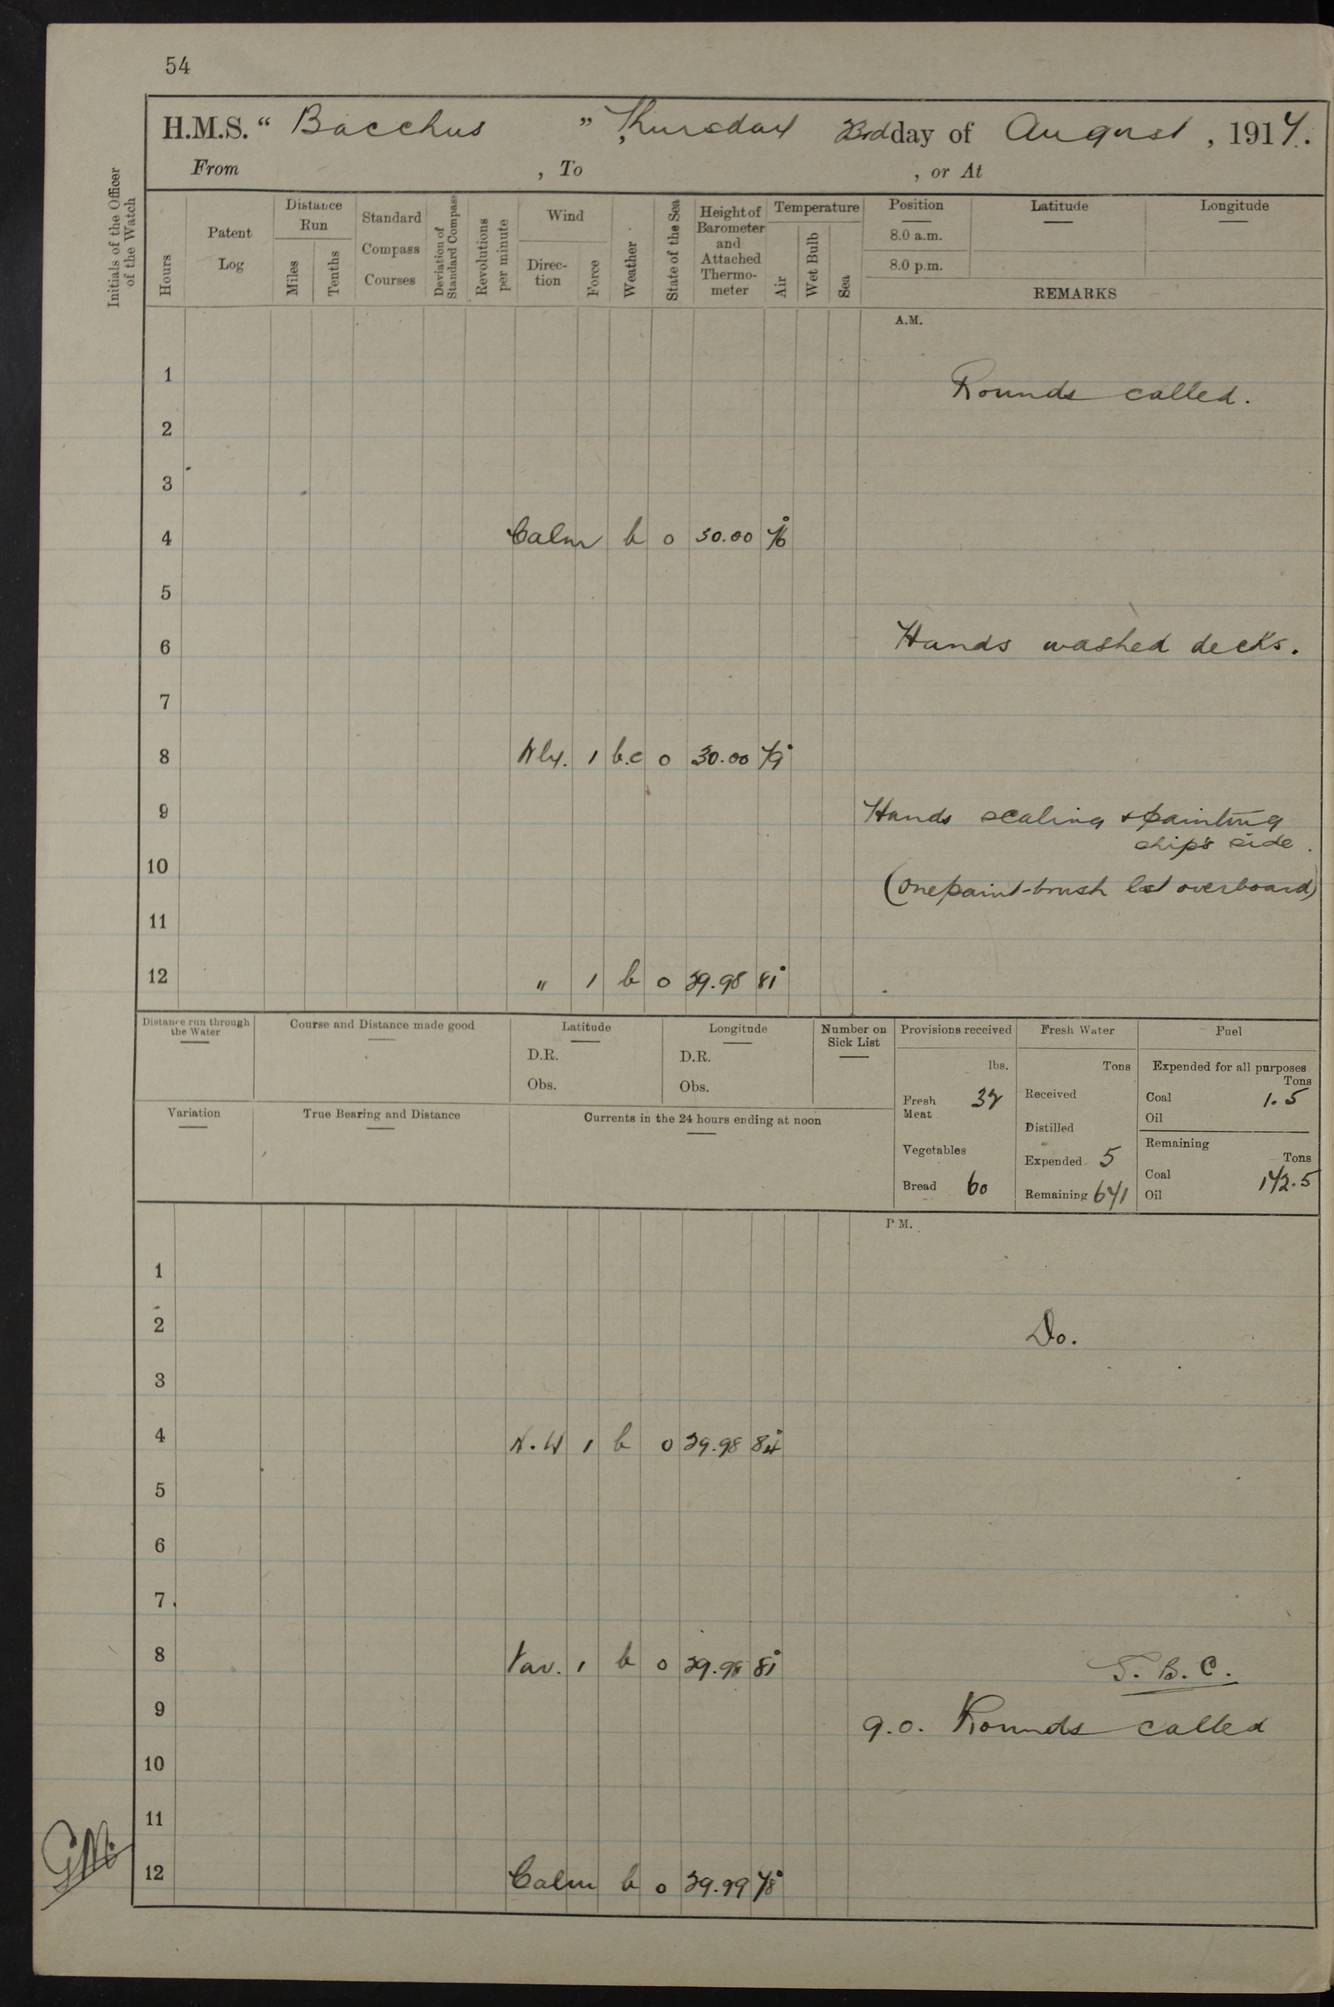 54
H.M.S. “ Bacchus ” Thursday 23rd day of August, 1917.
From , To , or At
Initials of the Officer of the Watch
Hours
Patent Log
Distance Run
Miles
Tenths
Standard Compass Courses
Deviation of Standard Compass
Revolutions per minute
Wind
Direction
Force
Weather
State of the Sea
Height of Barometer and Attached Thermometer
Temperature
Air
Wet Bulb
Sea
Position
8.0 a.m.
8.0 p.m.
Latitude
Longitude
REMARKS
A.M.
1 Rounds called.
2
3
4 Calm b 0 30.00 76°
5
6 Hands washed decks.
7
8 Nly. 1 b.c 0 30.00 79°
9 Hands scaling & painting
ship's side.
10 (One paint-brush lost overboard)
11
12 " 1 b 0 29.98 81°
Distance run through the Water
Course and Distance made good
Latitude
D.R.
Obs.
Longitude
D.R.
Obs.
Number on Sick List
Variation
True Bearing and Distance
Currents in the 24 hours ending at noon
Provisions received
lbs.
Fresh Meat 37
Vegetables
Bread 60
Fresh Water
Tons
Received
Distilled
Expended 5
Remaining 671
Fuel
Expended for all purposes
Tons
Coal 1.5
Oil
Remaining
Tons
Coal 172.5
Oil
P.M.
1
2 Do.
3
4 N.W 1 b 0 29.98 84°
5
6
7
8 Var. 1 b 0 29.98 81° T.B.C.
9 9.0. Rounds called
10
11
12 Calm b 0 29.99 78°